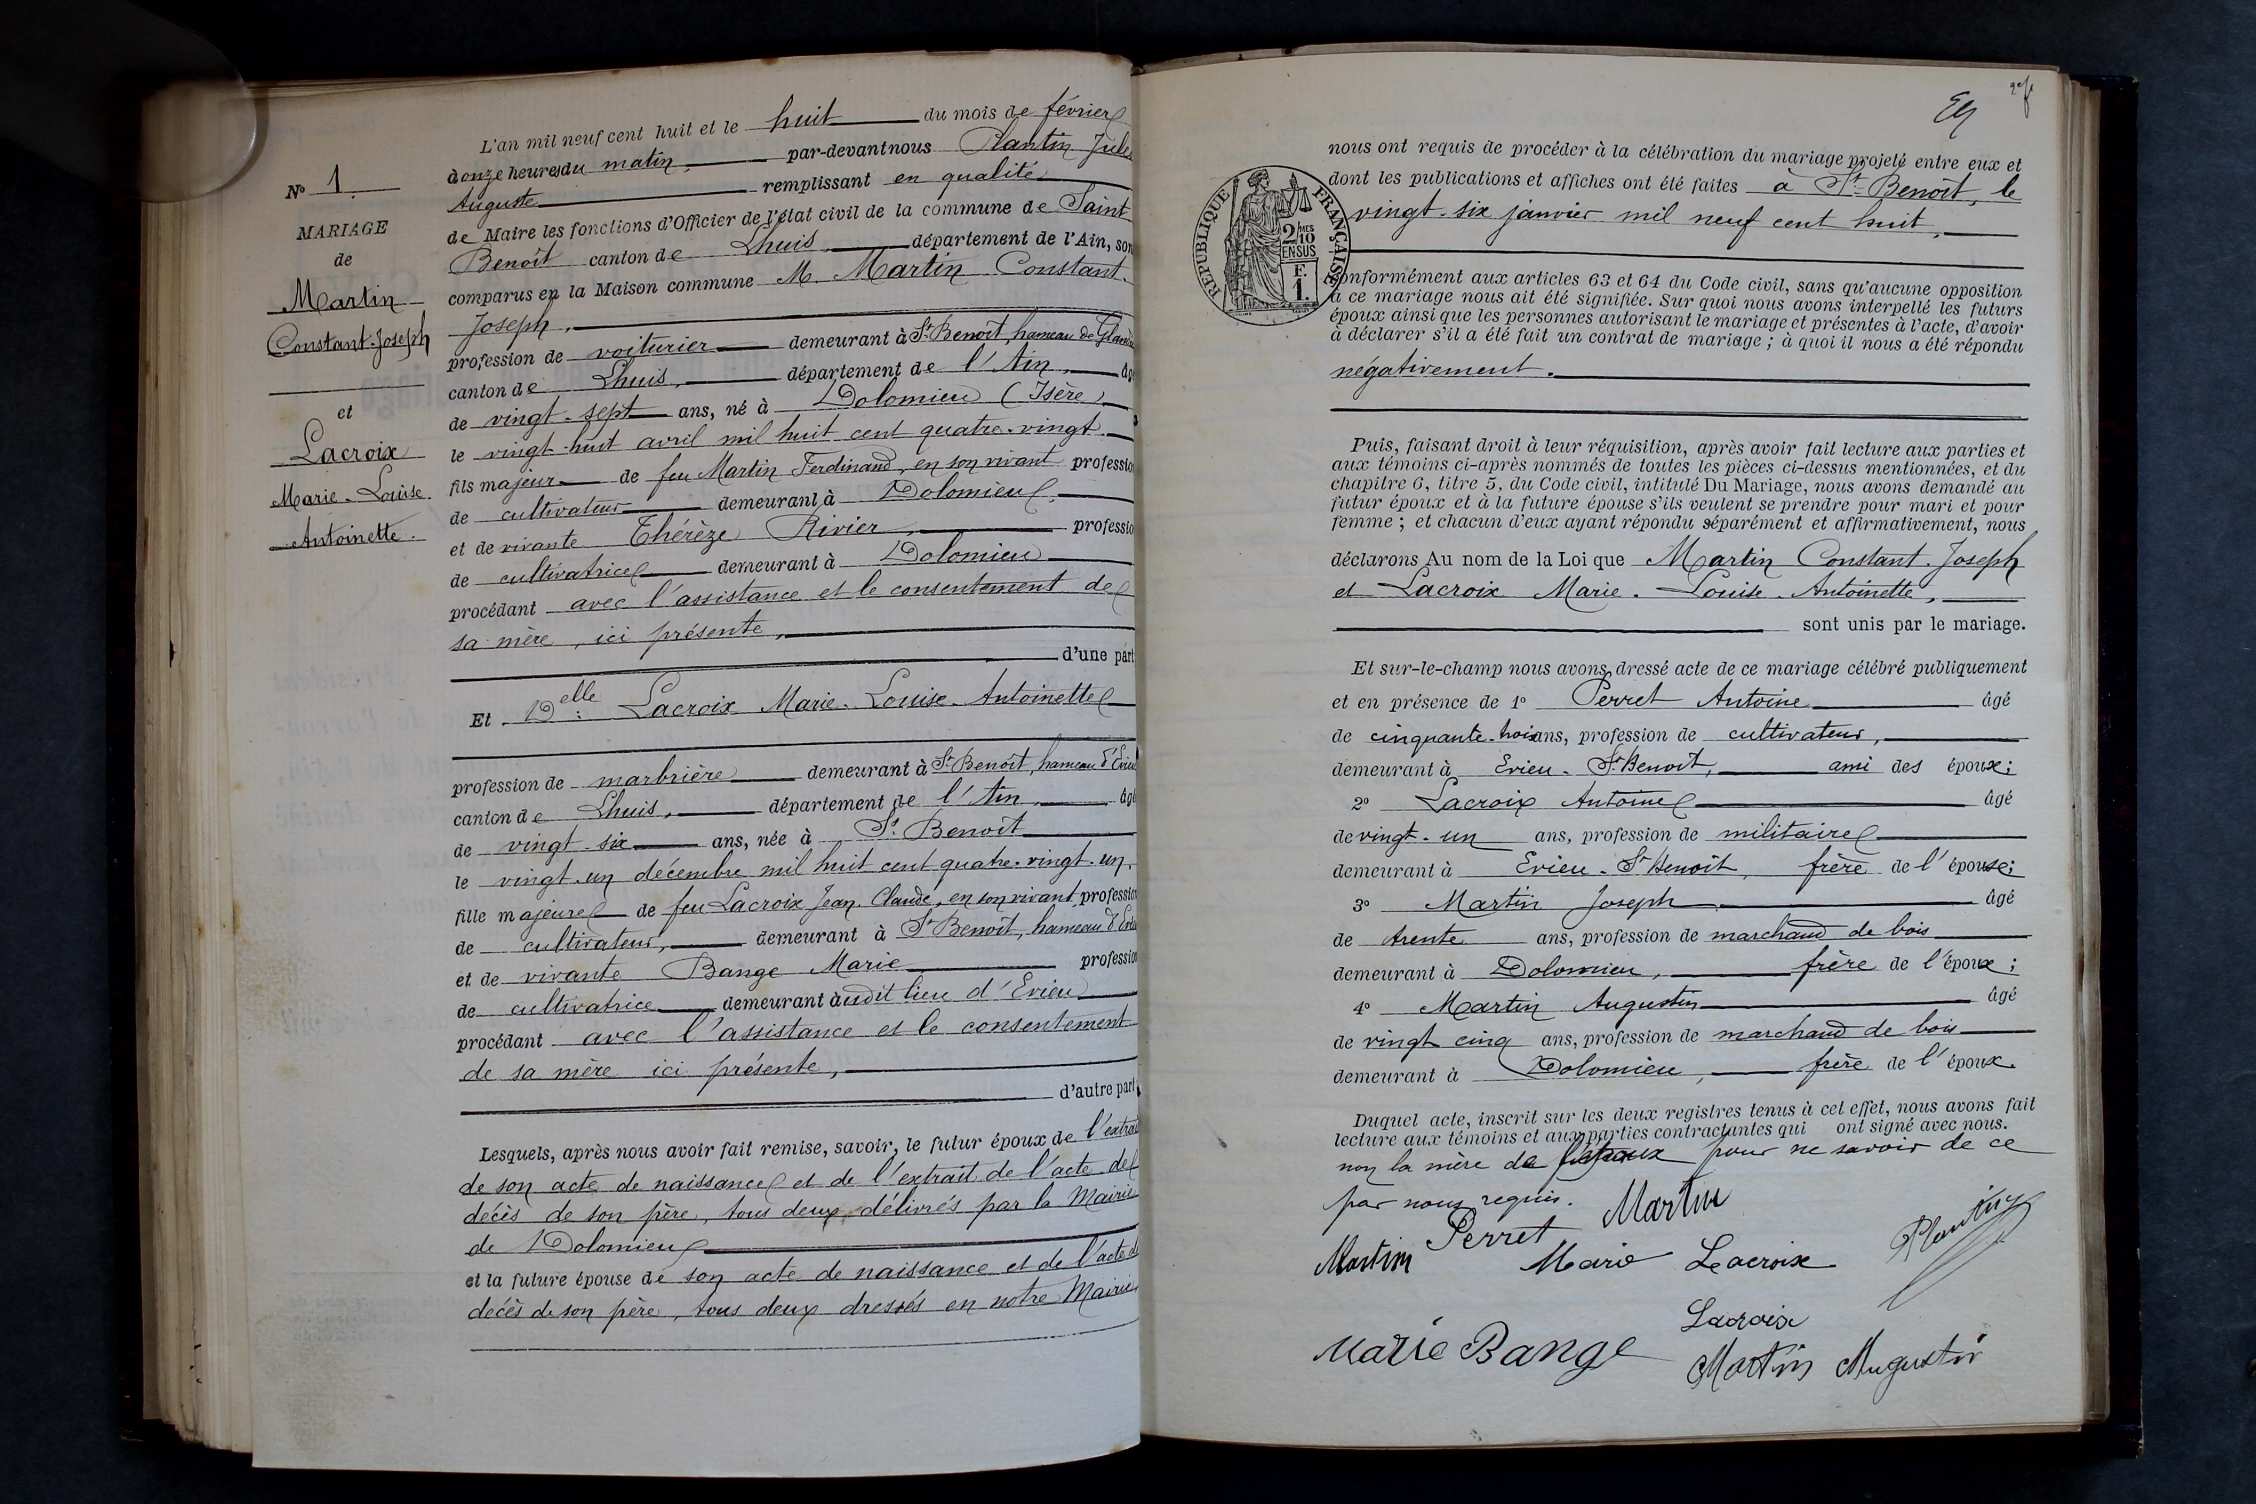 N° 1
MARIAGE
de
Martin
Constant-Joseph
et
Lacroix
Marie-Louise
Antoinette.
L'an mil neuf cent huit et le huit du mois de février
à onze heures du matin, par-devant nous Plantin Jules
Auguste remplissant en qualité
de Maire les fonctions d'Officier de l'état civil de la commune de Saint
Benoît canton de Lhuis département de l'Ain, son
comparus en la Maison commune M. Martin Constant-
Joseph,
profession de voiturier demeurant à St Benoît, hameau de
canton de Lhuis, département de l'Ain, âgé
de vingt-sept ans, né à Dolomieu (Isère),
le vingt-huit avril mil huit cent quatre-vingt
fils majeur de feu Martin Ferdinand, en son vivant profession
de cultivateur demeurant à Dolomieu,
et de vivante Thérèze Rivier, profession
de cultivatrice demeurant à Dolomieu
procédant avec l'assistance et le consentement de
sa mère, ici présente,
d'une part
Et Delle Lacroix Marie-Louise-Antoinette
profession de marbrière demeurant à St Benoît, hameau d'Evieu
canton de Lhuis, département de l'Ain, âgé
de vingt-six ans, née à St Benoît
le vingt-un décembre mil huit cent quatre-vingt-un,
fille majeure de feu Lacroix Jean-Claude, en son vivant, profession
de cultivateur, demeurant à St Benoît, hameau d'Evieu
et de vivante Bange Marie profession
de cultivatrice demeurant audit lieu d'Evieu
procédant avec l'assistance et le consentement
de sa mère ici présente,
d'autre part,
Lesquels, après nous avoir fait remise, savoir, le futur époux de l'extrait
de son acte de naissance et de l'extrait de l'acte de
décès de son père, tous deux délivrés par la Mairie
de Dolomieu
et la future épouse de son acte de naissance et de l'acte de
décès de son père, tous deux dressés en notre Mairie
RÉPUBLIQUE FRANÇAISE
2/10 MES
EN SUS
F.
1.
nous ont requis de procéder à la célébration du mariage projeté entre eux et
dont les publications et affiches ont été faites à St Benoît, le
vingt-six janvier mil neuf cent huit,
conformément aux articles 63 et 64 du Code civil, sans qu'aucune opposition
à ce mariage nous ait été signifiée. Sur quoi nous avons interpellé les futurs
époux ainsi que les personnes autorisant le mariage et présentes à l'acte, d'avoir
à déclarer s'il a été fait un contrat de mariage ; à quoi il nous a été répondu
négativement.
Puis, faisant droit à leur réquisition, après avoir fait lecture aux parties et
aux témoins ci-après nommés de toutes les pièces ci-dessus mentionnées, et du
chapitre 6, titre 5, du Code civil, intitulé Du Mariage, nous avons demandé au
futur époux et à la future épouse s'ils veulent se prendre pour mari et pour
femme ; et chacun d'eux ayant répondu séparément et affirmativement, nous
déclarons Au nom de la Loi que Martin Constant-Joseph
et Lacroix Marie-Louise-Antoinette,
sont unis par le mariage.
Et sur-le-champ nous avons dressé acte de ce mariage célébré publiquement
et en présence de 1° Perret Antoine âgé
de cinquante-trois ans, profession de cultivateur,
demeurant à Evieu-St Benoît, ami des époux ;
2° Lacroix Antoine âgé
de vingt-un ans, profession de militaire
demeurant à Evieu-St Benoît, frère de l'épouse ;
3° Martin Joseph âgé
de trente ans, profession de marchand de bois
demeurant à Dolomieu, frère de l'époux ;
4° Martin Augustin âgé
de vingt cinq ans, profession de marchand de bois
demeurant à Dolomieu, frère de l'époux.
Duquel acte, inscrit sur les deux registres tenus à cet effet, nous avons fait
lecture aux témoins et aux parties contractantes qui ont signé avec nous.
non la mère de l'époux pour ne savoir de ce
par nous requis. Martin
Perret
Plantin
Martin Marie Lacroix
Lacroix
Marie Bange
Martin Augustin